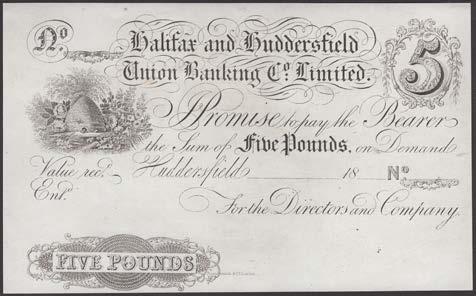 No.
Halifax and Huddersfield
Union Banking Co. Limited.
5
I Promise to pay the Bearer
the Sum of Five Pounds, on Demand
Value recd. Huddersfield 18 No.
Entd.
For the Directors and Company.
FIVE POUNDS